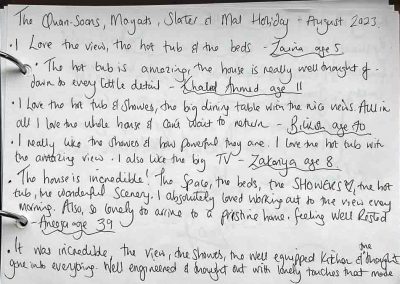 The Quan-Soans, Mayats, Slater & Mal Holiday - August 2023.
· I Love the view, the hot tub & the beds - Zaina age 5
· The hot tub is amazing, the house is really well thought of -
down to every little detail - Khaled Ahmed age 11
· I Love the hot tub & Showers, the big dining table with the nice views. All in
all I love the whole house & can't wait to return - age 40
· I really like the showers & how powerful they are. I love the hot tub with
the amazing view. I also like the big TV - Zakariya age 8
· The house is incredible! The space, the beds, the SHOWERS, the hot
tub, the wonderful scenery. I absolutely loved working out to the view every
morning. Also, so lovely to arrive to a pristine home. feeling well Rested
- age 39
· It was incredible, the view, the showers, the well equipped kitchen & the thought
gone into everything. Well engineered & thought out with lovely touches that made